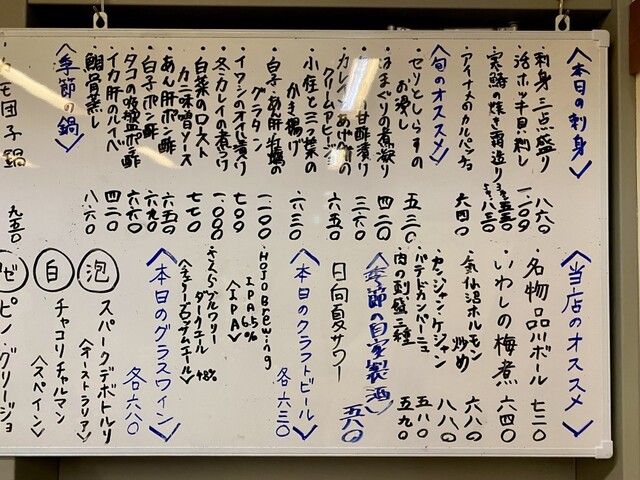 〈本日の刺身〉
刺身三点盛り 一八六〇
活ホッキ貝刺し 一、一〇〇
寒鰆の焼き霜造り 八三〇
アイナメのカルパッチョ 六四〇
〈旬のオススメ〉
セリとしらすのお浸し 五三〇
はまぐりの煮凝り 四二〇
甘酢漬け 三六〇
クリームチーズ 六五〇
小柱と三つ葉のかき揚げ 六三〇
白子、あん肝、牡蠣のグラタン 一、二〇〇
イワシのオイル漬け 七〇〇
冬カレイの煮つけ 一、〇〇〇
白菜のロースト カニ味噌ソース 七七〇
あん肝ポン酢 六五〇
白子ポン酢 六九〇
タコの吸盤ポン酢 六六〇
イカ肝のルイベ 四二〇
鯛骨蒸し 八六〇
〈季節の鍋〉
団子鍋 九五〇
〈当店のオススメ〉
・名物品川ボール 七二〇
・いわしの梅煮 六四〇
・気仙沼ホルモン炒め 六八〇
・カンジャンケジャン 八八〇
・パテドカンパーニュ 五八〇
・肉の刺盛三種 五九〇
〈季節の自家製酒〉
日向夏サワー 五八〇
〈本日のクラフトビール〉 各六三〇
・HOJO Brewing
IPA 6.5%
〈IPA〉
・さくらブルワリー
ダークエール 4.8%
〈本日のグラスワイン〉 各六八〇
泡 スパークデボトルリ
〈オーストラリア〉
白 チャコリチャルマン
〈スペイン〉
ピノ・グリージョ